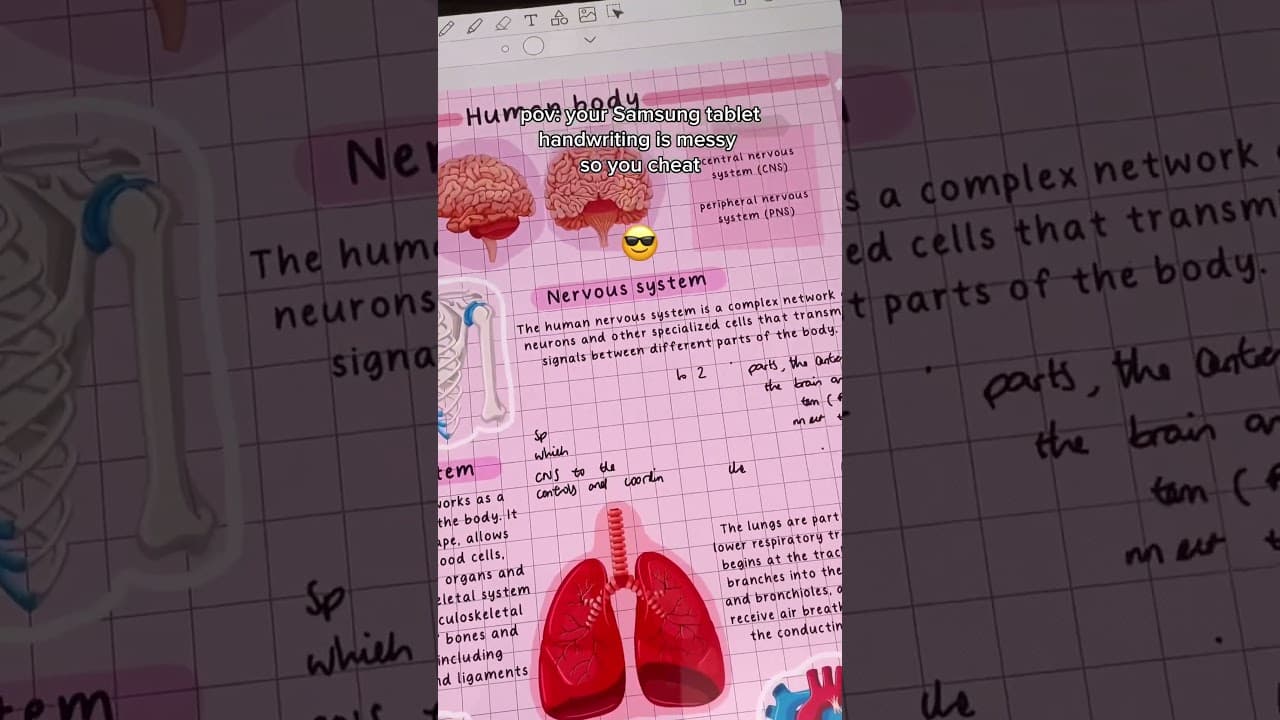 T
Human body
pov: your Samsung tablet
handwriting is messy
so you cheat
central nervous
system (CNS)
peripheral nervous
system (PNS)
Nervous system
The human nervous system is a complex network
neurons and other specialized cells that transm
signals between different parts of the body.
to 2
parts, the
the brain
Sp
which
CNS to the
controls and coordin
the
tem
works as a
the body. It
ape, allows
ood cells,
organs and
eletal system
culoskeletal
bones and
including
nd ligaments
The lungs are part
lower respiratory tr
begins at the trac
branches into the
and bronchioles,
receive air breath
the conductin
Ner
The hum
neurons
signa
Sp
which
tem
s a complex network
ed cells that transm
t parts of the body.
parts, the
the brain
the